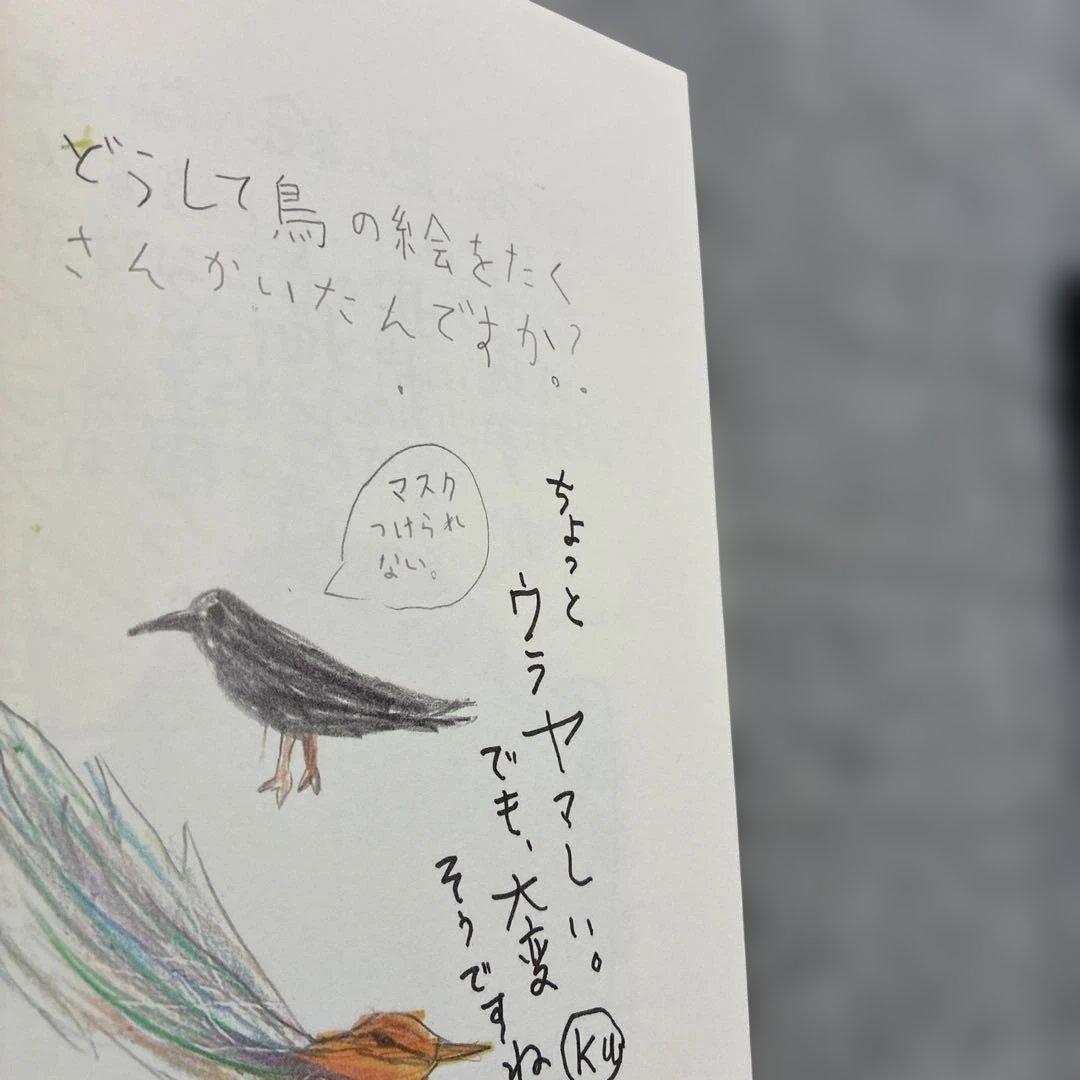 どうして鳥の絵をたく
さんかいたんですか?
マスク
つけられ
ない。
ちょっと
ウラヤマしい。
でも、大変
そうですね